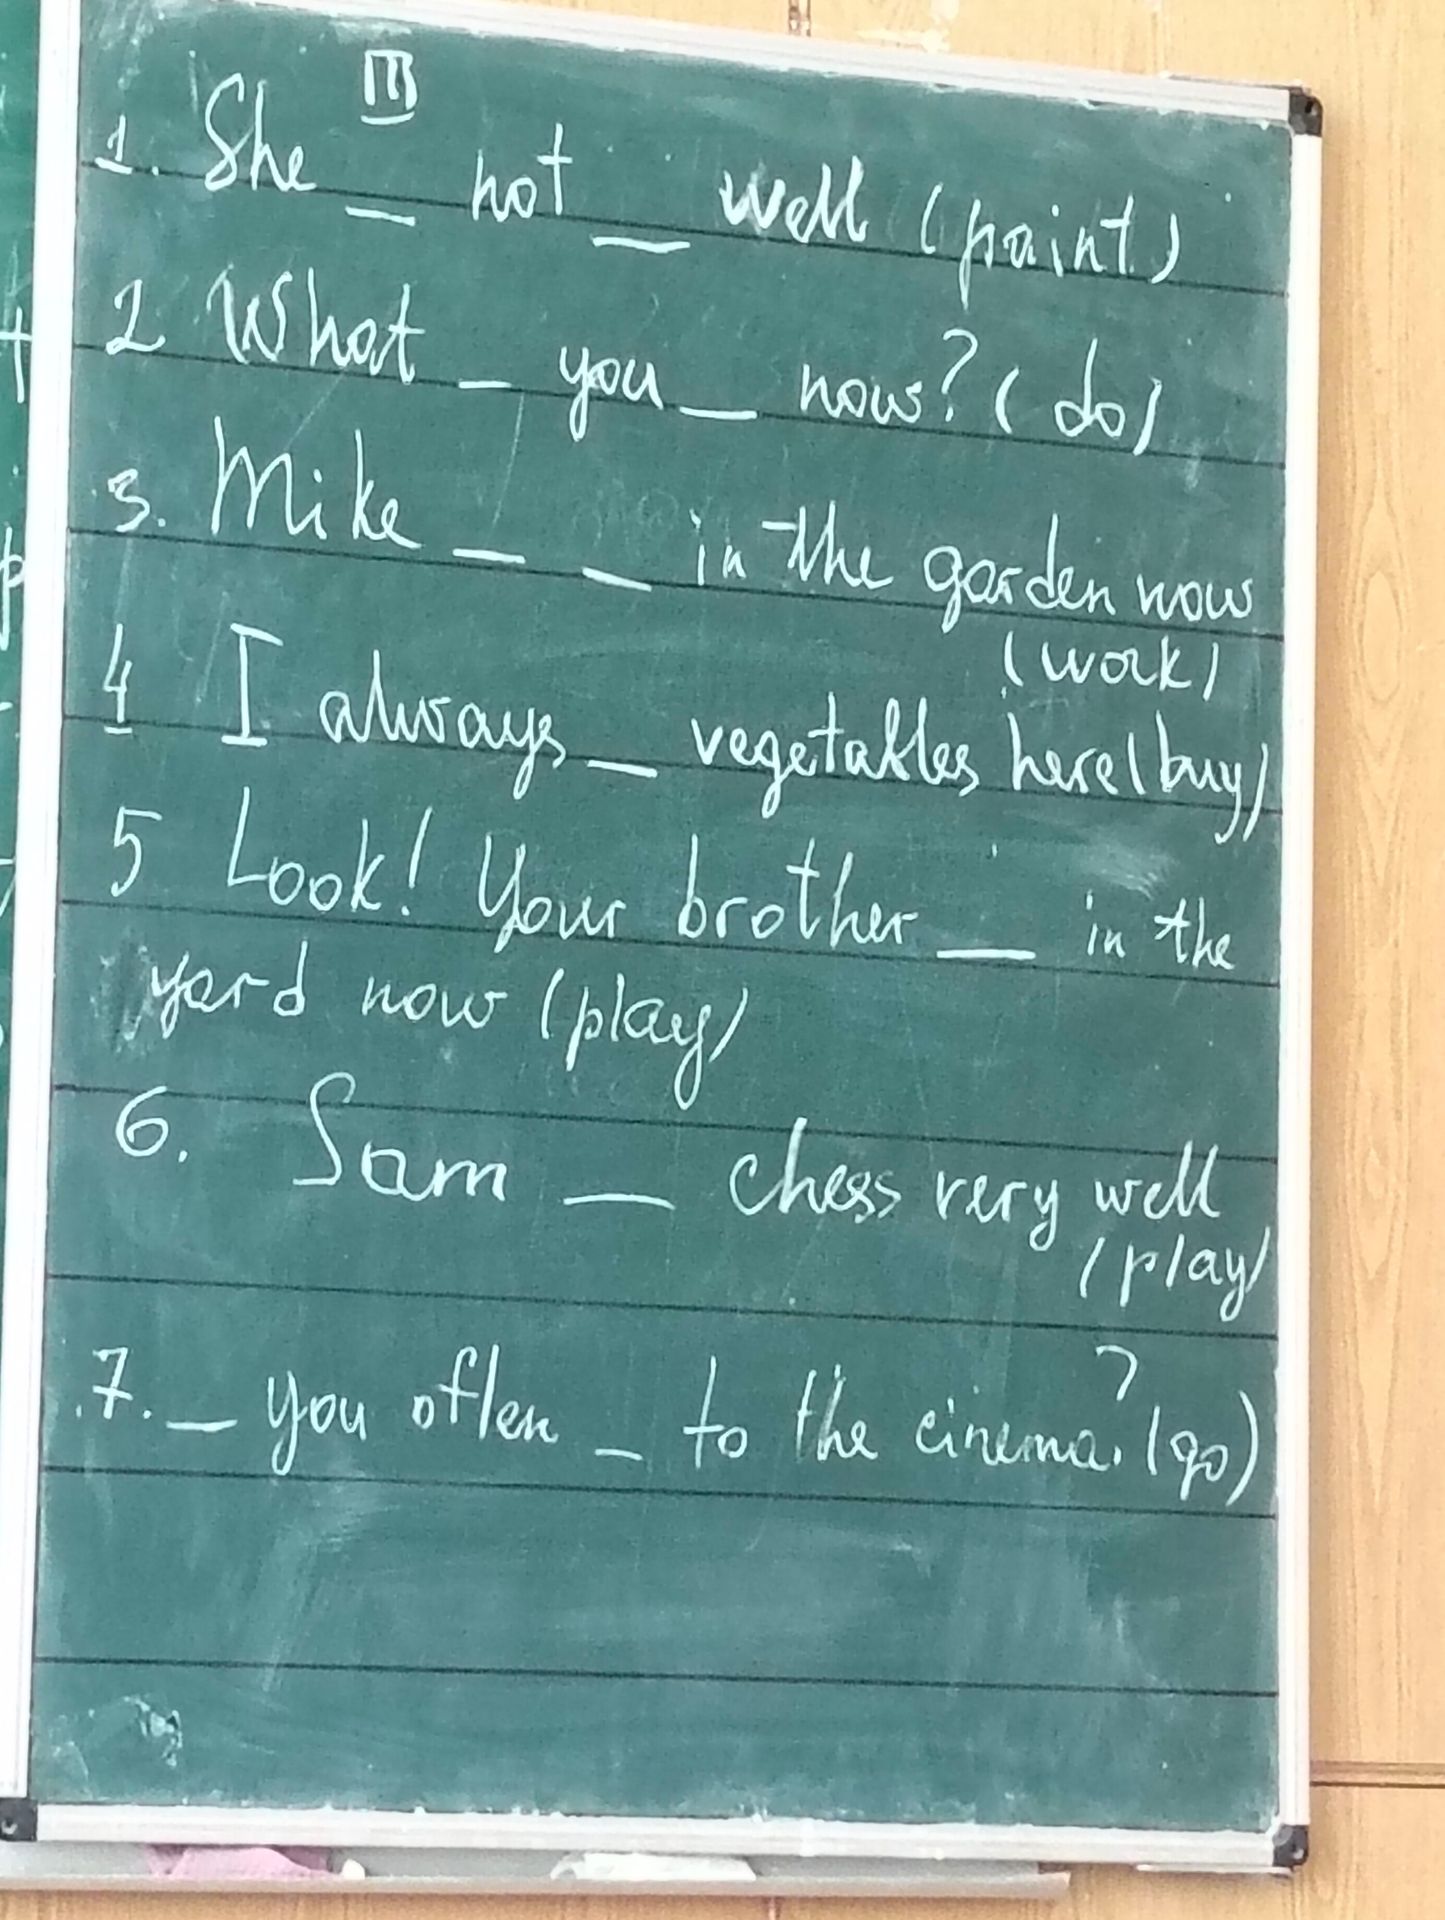 III
1. She _ not _ well (paint)
2 What _ you _ now? (do)
3. Mike _ _ in the garden now
(work)
4 I always _ vegetables here (buy)
5 Look! Your brother _ in the
yard now (play)
6. Sam _ chess very well
(play)
7. _ you often _ to the cinema? (go)